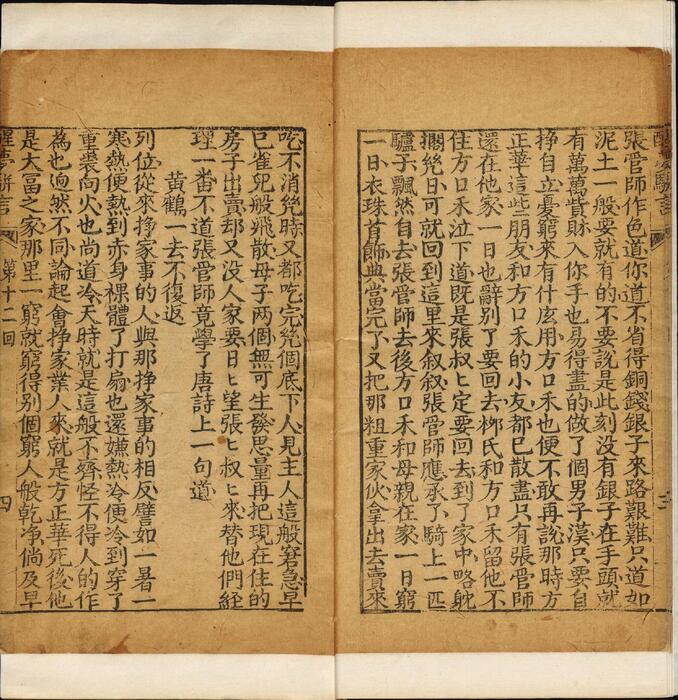 張管師作色道你道不省得銅錢銀子來路艱難只道如
泥土一般要就有的不要說是此刻没有銀子在手頭就
有萬萬貲財入你手也易得盡的做了個男子漢只要自
挣自立憂窮來有什庅用方口禾也便不敢再說那時方
正華這些朋友和方口禾的小友都已散盡只有張管師
還在他家一日也辭別了要回去柳氏和方口禾留他不
住方口禾泣下道既是張叔叔定要回去到了家中略躭
擱幾日可就回到這里來叙叙張管師應承了騎上一匹
驢子飄然自去張管師去後方口禾和母親在家一日窮
一日衣珠首飾典當完了又把那粗重家伙拿出去賣來
吃不消幾時又都吃完幾個底下人見主人這般窘急早
已雀兒般飛散母子兩個無可生發思量再把現在住的
房子出賣却又没人家要日日望張叔叔來替他們經
理一番不道張管師竟學了唐詩上一句道
黄鶴一去不復返
列位從來挣家事的人與那挣家事的相反譬如一暑一
寒熱便熱到赤身裸體了打扇也還嫌熱冷便冷到穿了
重裘向火也尚道冷天時就是這般不齊怪不得人的作
為也逈然不同論起會挣家業人來就是方正華死後他
是大富之家那里一窮就窮得别個窮人般乾净倘及早
醒夢駢言
第十二回
四